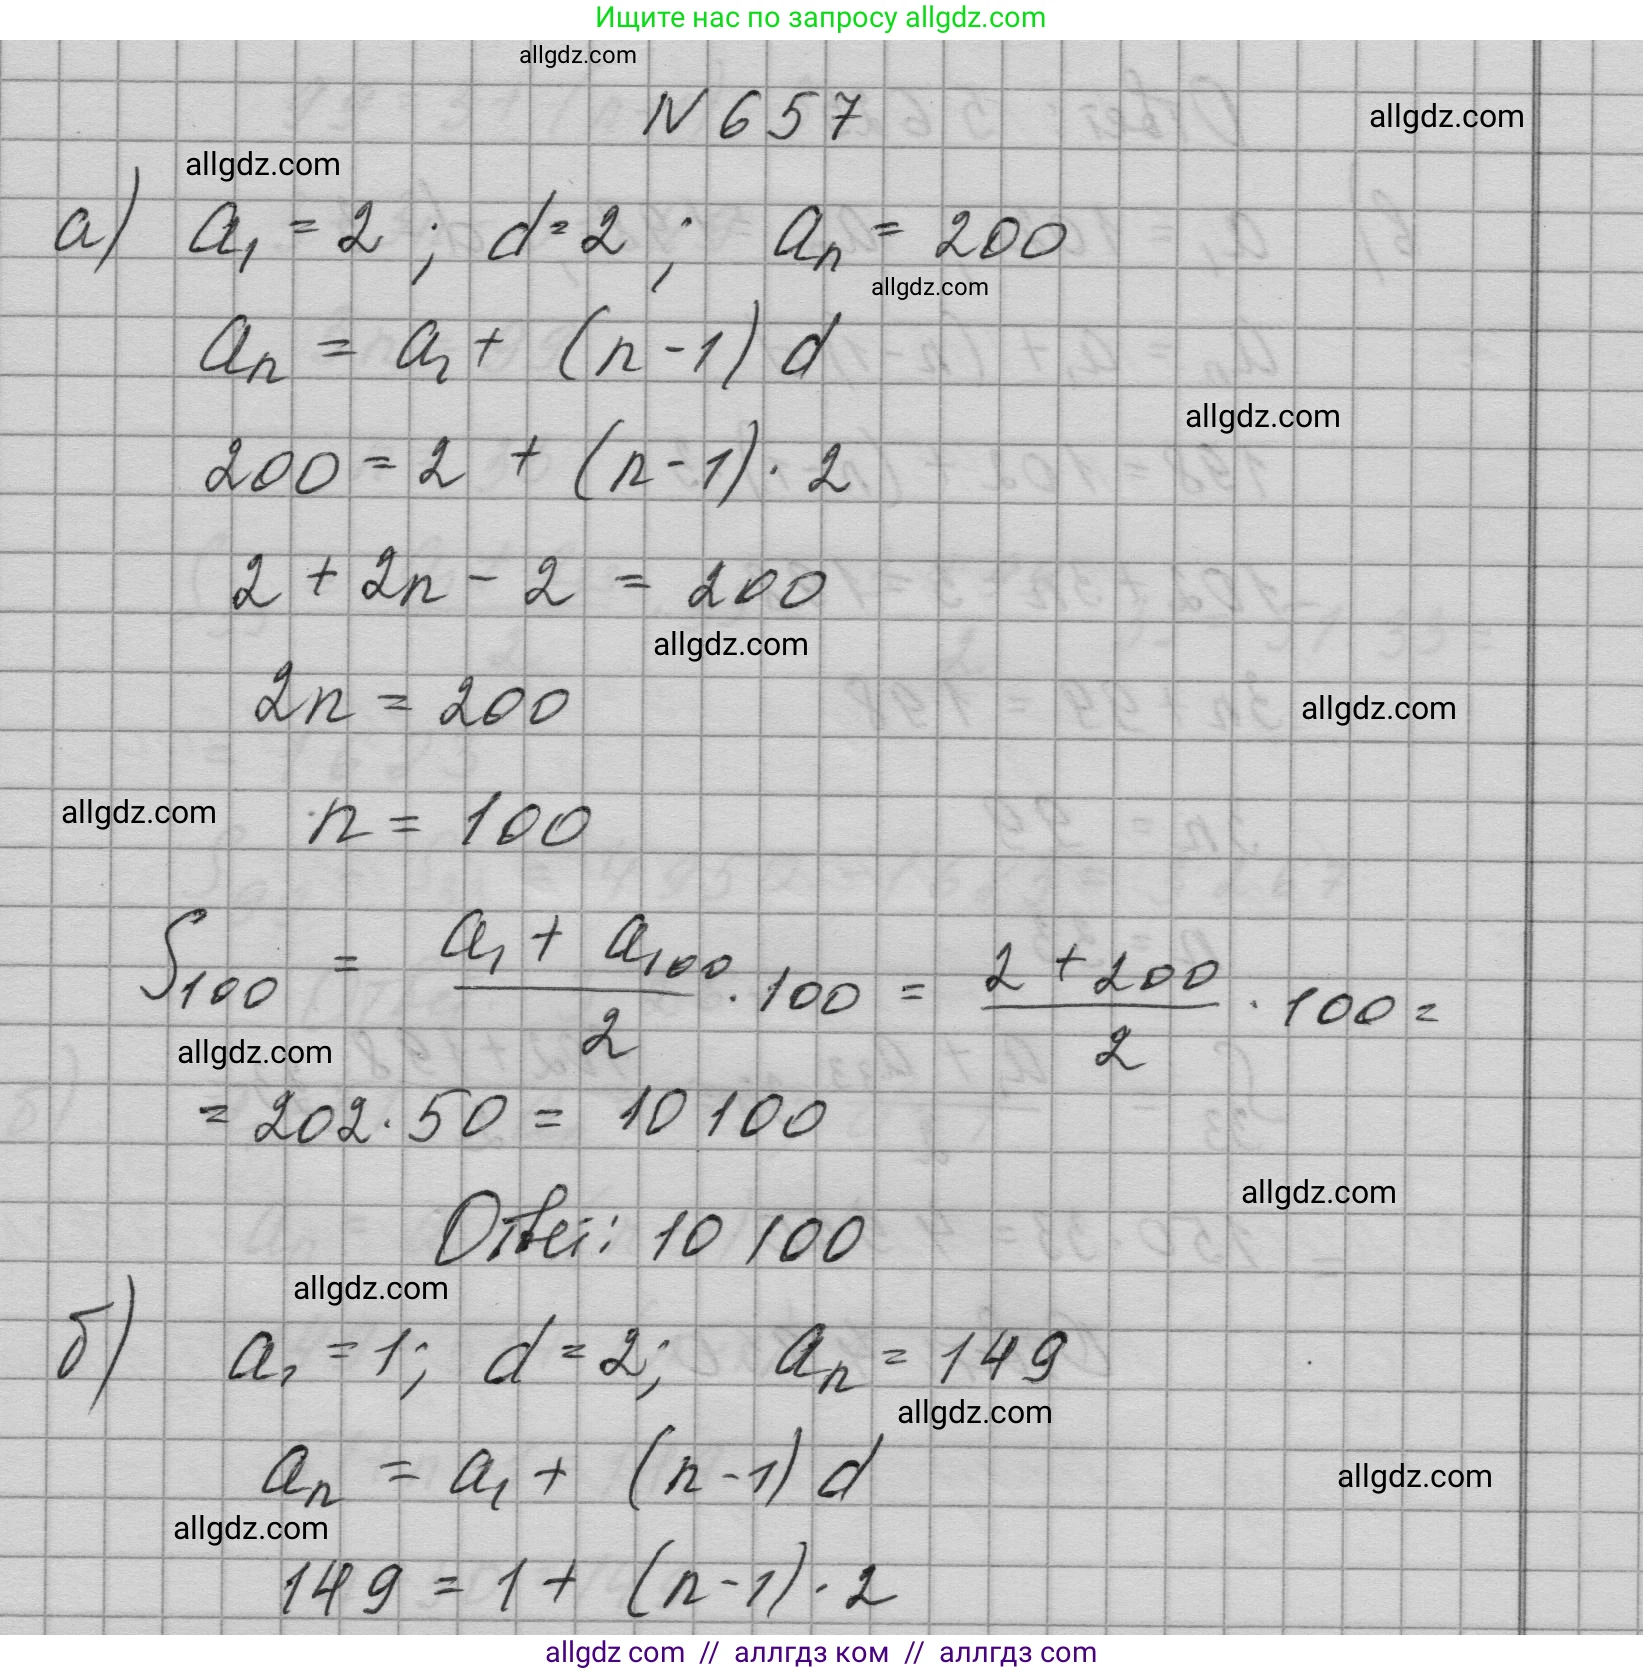 Ищите нас по запросу allgdz.com
allgdz.com
N 657
allgdz.com
allgdz.com
а) a₁ = 2 ; d = 2 ; aₙ = 200
allgdz.com
aₙ = a₁ + (n - 1) d
allgdz.com
200 = 2 + (n - 1) · 2
2 + 2n - 2 = 200
allgdz.com
2n = 200
allgdz.com
allgdz.com
n = 100
S₁₀₀ = (a₁ + a₁₀₀)/2 · 100 = (2 + 200)/2 · 100 =
allgdz.com
= 202 · 50 = 10 100
allgdz.com
Ответ: 10 100
allgdz.com
б) a₁ = 1; d = 2; aₙ = 149
allgdz.com
aₙ = a₁ + (n - 1) d
allgdz.com
allgdz.com
149 = 1 + (n - 1) · 2
allgdz com // аллгдз ком // аллгдз com